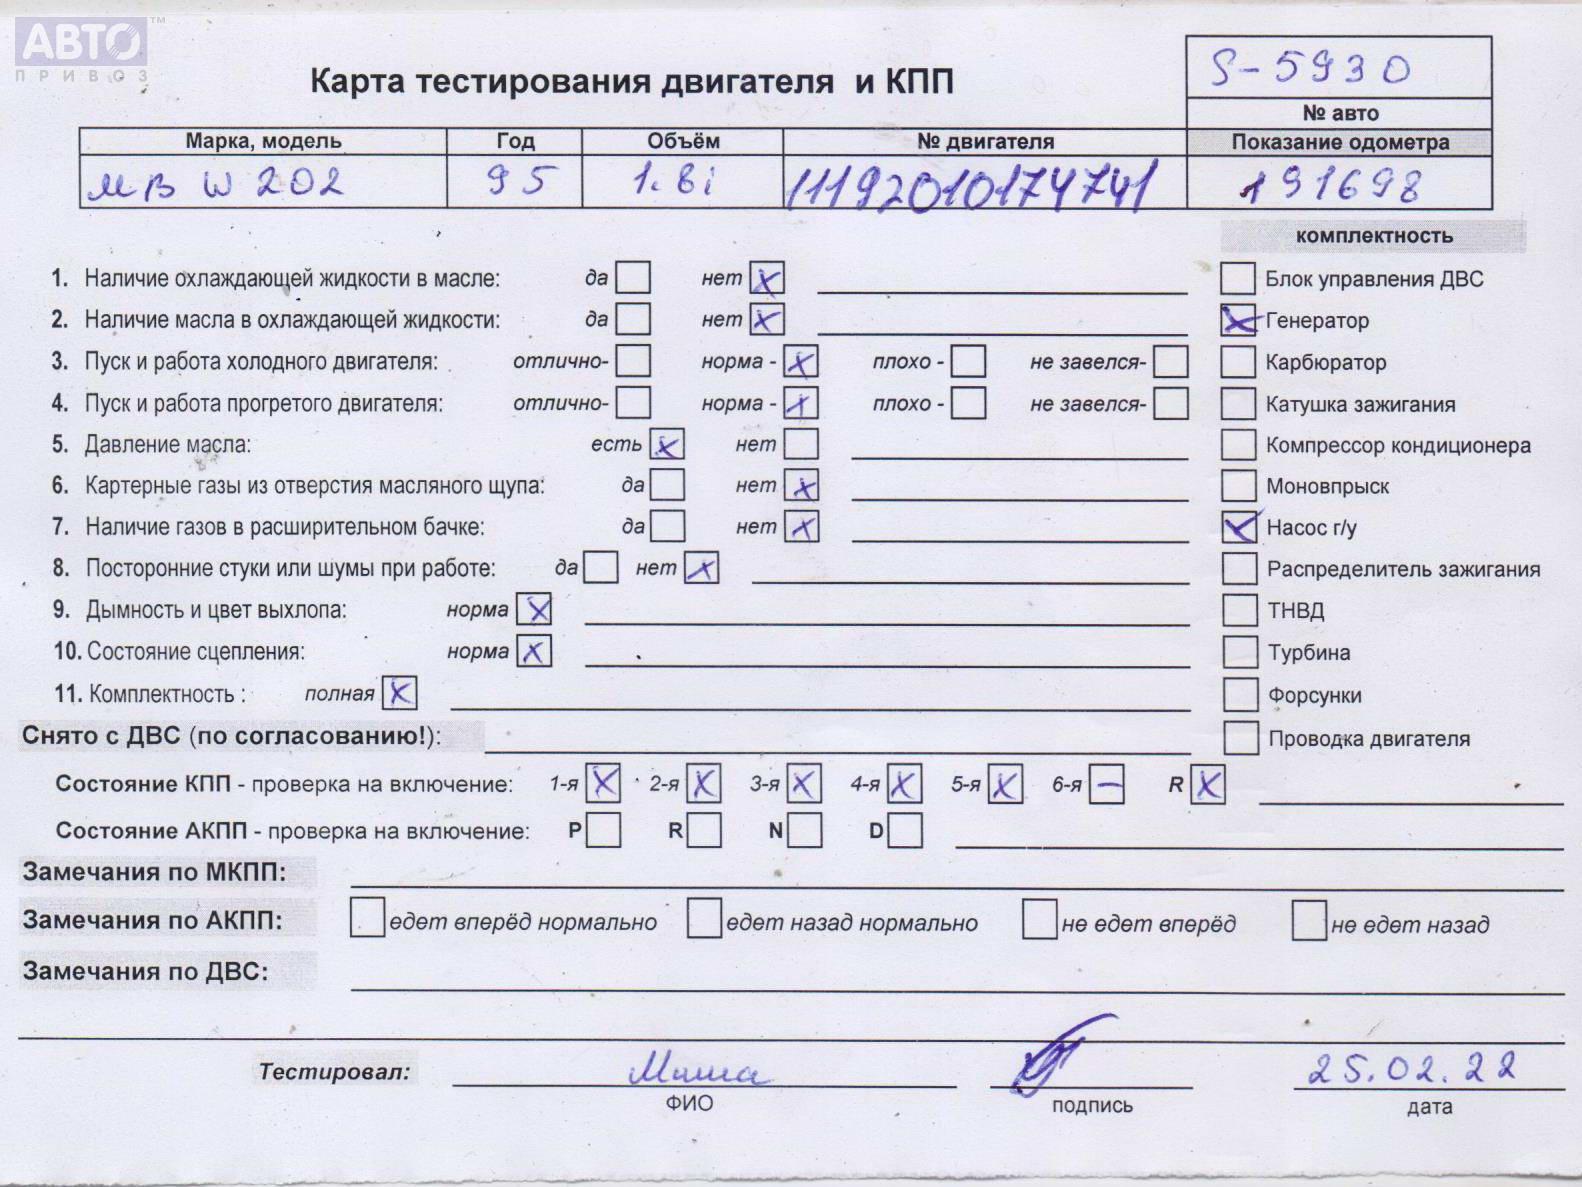 АВТО™
ПРИВОЗ
S-5930
Карта тестирования двигателя и КПП
№ авто
Марка, модель Год Объём № двигателя Показание одометра
МВ W 202 95 1.8i 11192010174741 191698
комплектность
1. Наличие охлаждающей жидкости в масле: да нет X Блок управления ДВС
2. Наличие масла в охлаждающей жидкости: да нет X X Генератор
3. Пуск и работа холодного двигателя: отлично- норма - X плохо - не завелся- Карбюратор
4. Пуск и работа прогретого двигателя: отлично- норма - X плохо - не завелся- Катушка зажигания
5. Давление масла: есть X нет Компрессор кондиционера
6. Картерные газы из отверстия масляного щупа: да нет X Моновпрыск
7. Наличие газов в расширительном бачке: да нет X X Насос г/у
8. Посторонние стуки или шумы при работе: да нет X Распределитель зажигания
9. Дымность и цвет выхлопа: норма X ТНВД
10. Состояние сцепления: норма X Турбина
11. Комплектность : полная X Форсунки
Снято с ДВС (по согласованию!): Проводка двигателя
Состояние КПП - проверка на включение: 1-я X 2-я X 3-я X 4-я X 5-я X 6-я — R X
Состояние АКПП - проверка на включение: P R N D
Замечания по МКПП:
Замечания по АКПП: едет вперёд нормально едет назад нормально не едет вперёд не едет назад
Замечания по ДВС:
Тестировал: Миша 25.02.22
ФИО подпись дата